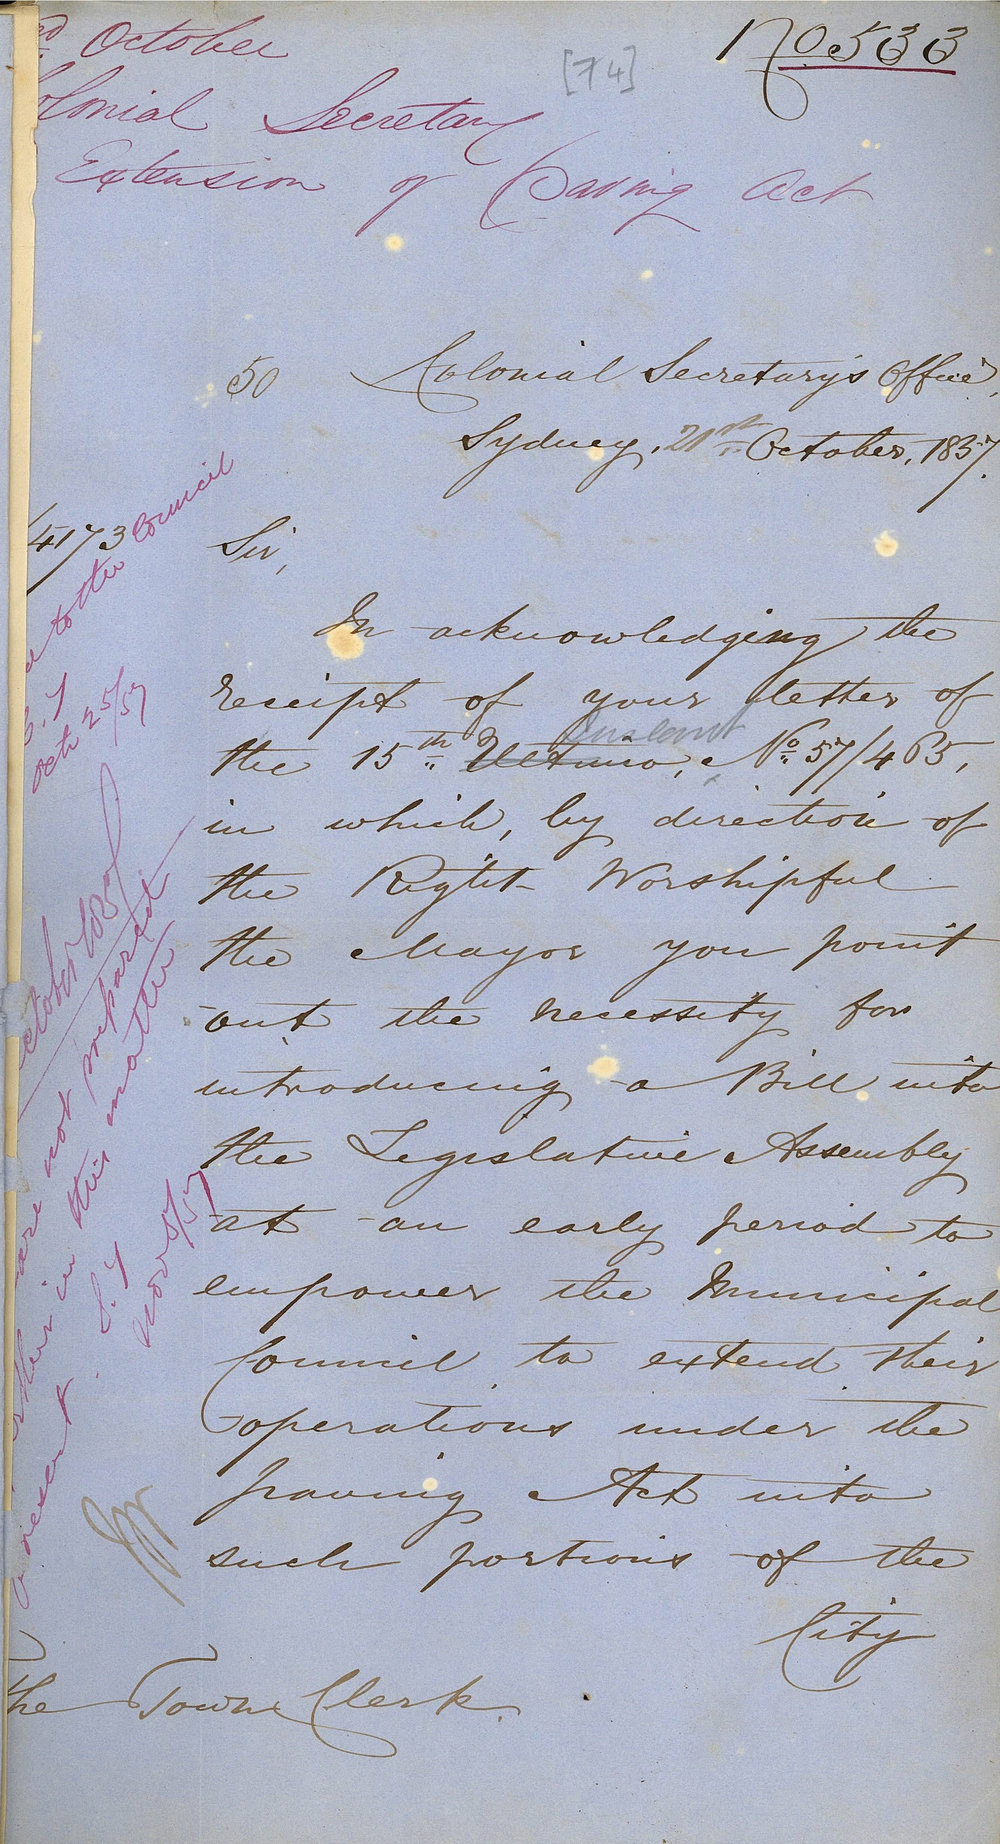 October
No. 533
[74]
Colonial Secretary
Extension of Paving Act
50 Colonial Secretary's Office,
Sydney, 21st October, 1857.
/4173
Sir,
In acknowledging the
receipt of your letter of
Instant
the 15th Ultimo, No. 57/485,
in which, by direction of
the Right Worshipful
the Mayor you point
out the necessity for
introducing a Bill into
the Legislative Assembly
at an early period to
empower the Municipal
Council to extend their
operations under the
paving Act into
such portions of the
City
The Town Clerk.
to the Council
Octr 25/57
October 1857
are not prepared
in this matter
present.
Nov 5/57